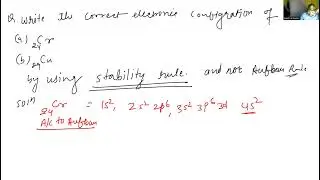 Q. Write the correct electronic configration of
(a) 24Cr
(b) 29Cu
by using stability rule. and not Aufbau Rule
Soln 24Cr = 1s², 2s² 2p⁶, 3s² 3p⁶ 3d 4s²
A/c to Aufbau